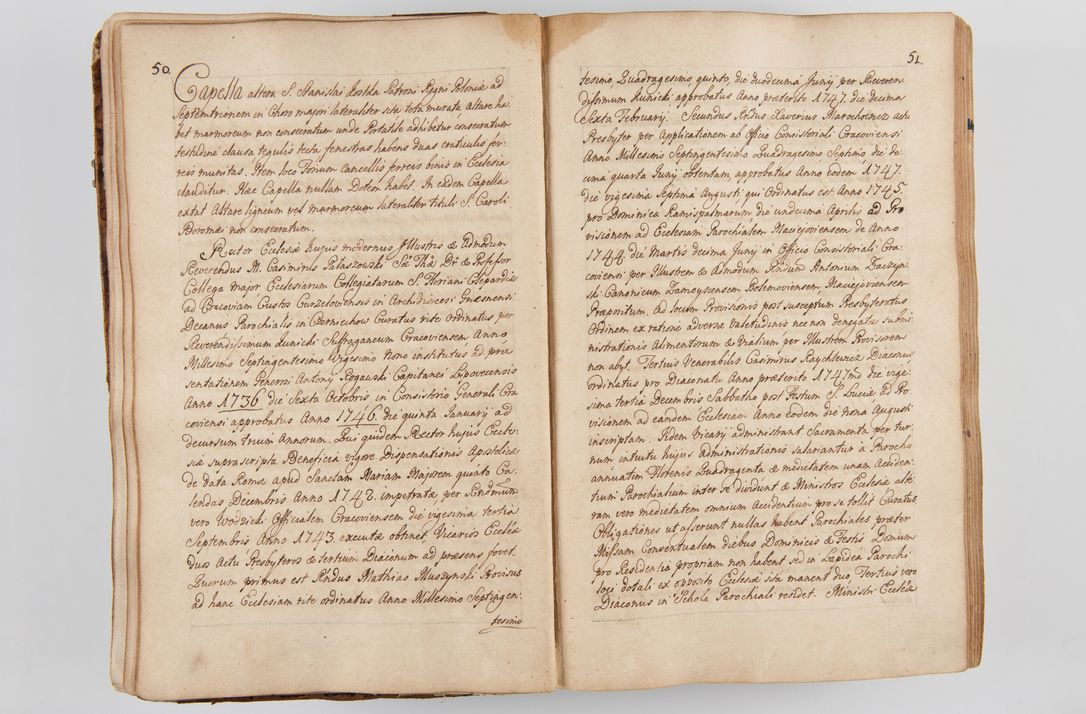 50.
Capella altera S. Stanislai Kostka Patroni Regni Poloniæ ad
Septemtrionem in Choro majori lateraliter sita tota murata, altare ha-
bet marmoreum non consecratum unde Portatile adhibetur consecratum
testudine clausa tegulis tecta fenestras habens duas craticulis fer-
reis munitas. Item loco Forium cancellis ferreis binis in Ecclesia
clauditur. Hæc Capella nullam Dotem habet. In eadem Capella
extat Altare ligneum vel marmoreum lateraliter tituli S. Caroli
Boromæi non consecratum.
Rector Ecclesiæ hujus modernus Illustris & Admodum
Reverendus M. Casimirus Pałaszowski Sæ Thæ Dr & Professor
Collega major Ecclesiarum Collegiatarum S. Floriani Clepardiæ
ad Cracoviam Custos Curzeloviensis in Archidiæcesi Gnesnensi
Decanus Parochialis in Czernichow Curatus rite Ordinatus per
Reverendissimum Kunicki Suffraganeum Cracoviensem Anno
Millesimo Septingentesimo Vigesimo Nono institutus ad præ
sentationem Generosi Antony Rogawski Capitanei Lipovecensis
Anno 1736 die Sexta Octobris in Consistorio Generali Cra
coviensi approbatus Anno 1746. die quinta January ad
decursum trium Annorum. Qui quidem Rector hujus Eccle-
siæ suprascripta Beneficia vigore Dispensationis Apostolicæ
de data Romæ apud Sanctam Mariam Majorem quinto Ca-
lendas Decembris Anno 1742. impetratæ per Rendmum
vero Wodzicki Officialem Cracoviensem die vigesima tertia
Septembris Anno 1743 executæ obtinet. Vicarios Eccleæ
duos Actu Presbyteros & tertium Diaconum ad præsens fovet.
Quorum primus est Rndus Mathias Muszynski Provisus
ad hanc Ecclesiam rite ordinatus Anno Millesimo Septingen-
tesimo
51.
tesimo, Quadragesimo quinto, die duodecima Junij per Reveren
dissimum Kunicki approbatus Anno præterito 1747. die decima
Sexta February. Secundus Rndus Xaverius Marocholenez actu
Presbyter per Applicationem ab Officio Consistoriali Cracoviensi
Anno Millesimo Septingentesimo Quadragesimo Septimo die de-
cima quarta Junij obtentam, approbatus Anno eodem 1747.
die vigesima Septima Augusti, qui Ordinatus est Anno 1745
pro Dominica Ramispalmarum die undecima Aprilis ad Pro
visionem ad Ecclesiam Parochialem Maciejoviensem de Anno
1744 die Martis decima Junij in Officio Consistoriali Cra
coviensi per Illustrem & Admodum Rndum Antonium Zaczyn-
ski Canonicum Zamoyscensem Maciejoviensem
Præpositum. Ad locum Provisionis post susceptum Presbyteratus
Ordinem ex ratione adversæ Valetudinis nec non denegatæ submi-
nistrationis Alimentorum & Vialium per Illustrem Provisorem
non abyt. Tertius Venerabilis Casimirus Raychlewicz Diaconus
ordinatus pro Diaconatu Anno præterito 1747mo die vige-
sima tertia Decembris Sabbatho post Festum S. Luciæ ad Pro
visionem ad eandem Ecclesiam Anno eodem die nona Augusti
inscriptam. Idem Vicarij administrant Sacramenta per tur-
num intuitu hujus administrationis salariantur à Parocho
annuatim Florenis Quadraginta & medietatem unam Acciden-
tium Parochialium inter se dividunt & Ministros Ecclesiæ alte
ram vero medietatem omnium Accidentium pro se tollit Curatus
Obligationes ut asserunt nullas habent Parochiales præter
Missam Conventualem diebus Dominicis & Festis Domum
pro Residentia propriam non habent sed in Lapidea Parochi
loci dotali ex opposito Ecclesiæ sita manent duo, Tertius vero
Diaconus in Schola Parochiali residet. Ministri Ecclesiæ